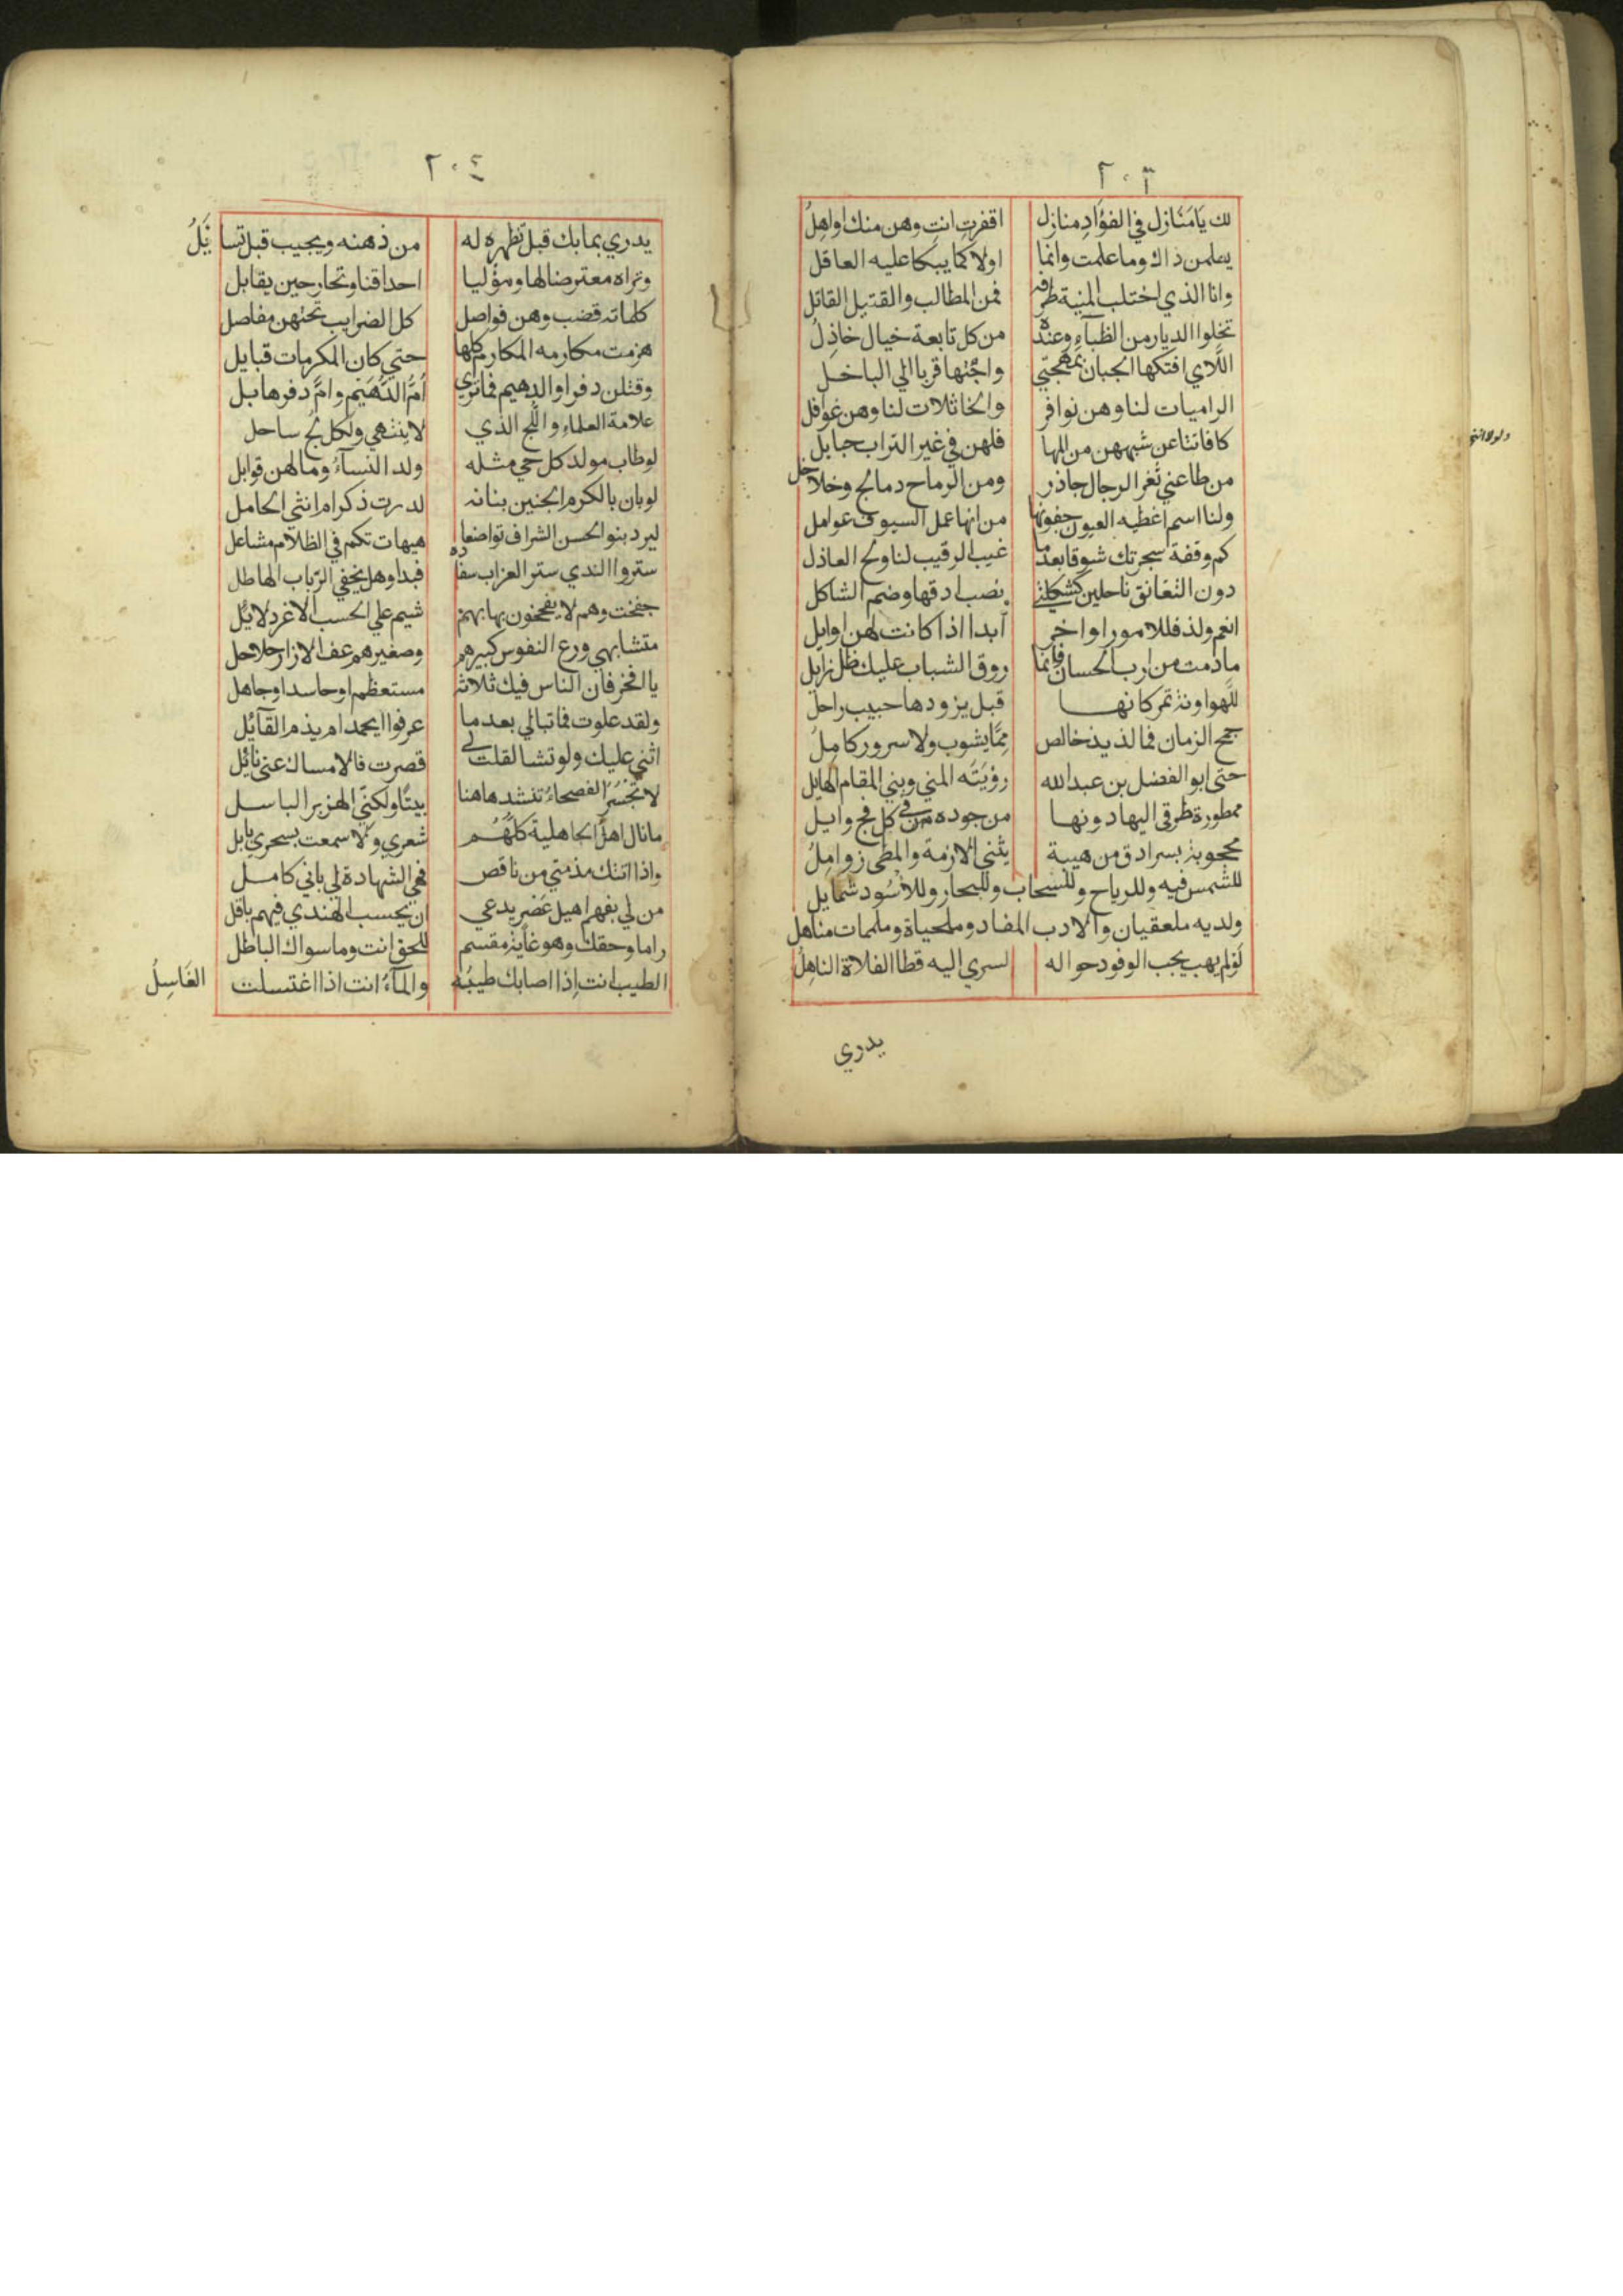 ٢٠٣
لك يَا مَنَازل في الفؤَادِ منازل اقفرتِ انتِ وهن منك اواهِلُ
يعلمن ذاك وما علمت وانما اولاكما يبكا عليه العاقل
وانا الذي اختلب المنية طرفه فمن المطالب والقتيل القاتل
تخلوا الديار من الظبآءِ وعنده من كل تابعة خيال خاذِلُ
اللَّاي افتكها الجبان بمهجتي واحبها قربا الي الباخل
الراميات لنا وهن نوافر والخاتلات لنا وهن غوافل
كافاننا عن شبههن من المها فلهن في غير التراب حبايل
من طاعني ثغر الرجال جاذر ومن الرماح دمالج وخلاخل
ولذا اسم اغطيه العيون جفونها من انها عمل السيوف عوامل
كم وقفة سجرتك شوقا بعدما غيب الرقيب لنا ولج العاذل
دون التعانق ناحلين كشكلتي نصب ادقها وضم الشاكل
انعم ولذ فللامور اواخر أبدا اذا كانت لهن اوايل
ما دمت من ارب الحسان فانما روق الشباب عليك ظل زايل
للَّهو اونة تمر كانها قبل يزودها حبيب راحل
جمح الزمان فما لذيذ خالص مِمَّا يشوب ولا سرور كامِلُ
حتى ابو الفضل بن عبد الله رؤيَتَه المني وبني المقام الهايل
ممطورة طرقي اليها دونها من جوده في كل فج وابل
محجوبة بسرادق من هيبة يثني الازمة والمطي زوامِلُ
للشمس فيه وللرياح وللسحاب وللبحار وللاسُود شمايل
ولديه ملعقيان والادب المفاد وملحياة وملممات مناهل
لَو لم يهب يجب الوفود حواله لسري اليه قطا الفلاة الناهِلُ
يدري
٢٠٤
يدري بما بك قبل تظهره له من ذهنه ويجيب قبل تسايَلُ
وتراه معترضا لها ومؤليا احداقنا وتحار حين يقابل
كلماته قضب وهن فواصل كل الضرايب تحتهن مفاصل
هزمت مكارمه المكارم كلها حتي كان المكرمات قبايل
وقتلن دفرا والدهيم فما تري أمُّ الدُّهَيْم وامَّ دفر هابل
علامة العلماءِ واللج الذي لا ينتهي ولكل لج ساحل
لو طاب مولد كل حي مثله ولد النسآءُ وما لهن قوابل
لو بان بالكرم الجنين بنانه لدرت ذكر ام انثي الحامل
ليزد بنو الحسن الشراف تواضعا هيهات تكم في الظلام مشاعل
ستروا الندي ستر الغراب سفاده فبدا وهل يخفي الرَّباب الهاطل
جفخت وهم لا يفخخون بها بهم شيم علي الحسب الاغر دلايل
متشابهي ورع النفوس كبيرهم وصغيرهم عف الازار حلاحل
يا افخر فان الناس فيك ثلاثة مستعظم او حاسد او جاهل
ولقد علوت فما تبالي بعدما عرفوا ايحمد ام يذم القآيُل
اثني عليك ولو تشا لقلت لي قصرت فالامساك عني نائِل
لا تَجْسُرُ الفصحاءُ تنشد هاهنا بيتًا ولكنّي الهزبر الباسل
ما نال اهلُ الجاهلية كلهُم شعري ولا سمعت بسحري بابل
واذا اتتك مذمتي من ناقص فهي الشهادة لي باني كامل
من لي بفهم اهيل عَصْر يدعي ان يحسب الهندي فيهم باقل
راما وحقك وهو غايَة مقسم للحق انت وما سواك الباطل
الطيب انت اِذا اصابك طيبُه والمآءُ انت اذا اغتسلت الغَاسِلُ